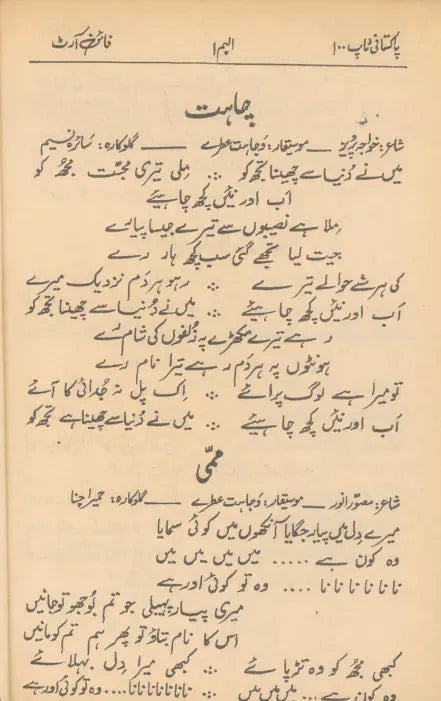 پاکستانی ٹاپ ۱۰۰ البم ۱ فائن آرٹ
چاہت
شاعر: خواجہ پرویز — موسیقار: وجاہت عطرے — گلوکارہ: سائرہ نسیم
میں نے دُنیا سے چھینا تجھ کو ∴ مِلی تیری محبّت مجھ کو
اَب اور نئیں کچھ چاہیئے
مِلا ہے نصیبوں سے تیرے جیسا پیار رے
جیت لیا تجھے گئی سب کچھ ہار رے
کی ہر شے حوالے تیرے ∴ رہو ہر دَم نزدیک میرے
اَب اور نئیں کچھ چاہیئے ∴ میں نے دُنیا سے چھینا تجھ کو
رہے تیرے مکھڑے پہ زُلفوں کی شام رے
ہونٹوں پہ ہر دَم رہے تیرا نام رے
تو میرا ہے لوگ پرائے ∴ اِک پل نہ جُدائی کا آئے
اَب اور نئیں کچھ چاہیئے ∴ میں نے دُنیا سے چھینا ہے تجھ کو
ممّی
شاعر: مصوّر انور — موسیقار: وجاہت عطرے — گلوکارہ: حمیرا چنا
میرے دِل میں پیار جگایا آنکھوں میں کوئی سمایا
وہ کون ہے ..... میں میں میں میں
نا نا نا نا نا نا .... وہ تو کوئی اور ہے
میری پیار پہیلی جو تم بُوجھو تو جانیں
اس کا نام بتاؤ تو پھر ہم تم کو مانیں
کبھی مجھ کو وہ تڑپائے ∴ کبھی میرا دِل بہلائے
وہ کون ہے ... میں میں میں ∴ نانانانانانا .... وہ تو کوئی اور ہے